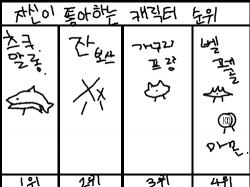 자신이 좋아하는 캐릭터 순위
츠쿠
말롱.
잔
개구리
프랑
벨
페
골
마몬.
1위 2위 3위 4위